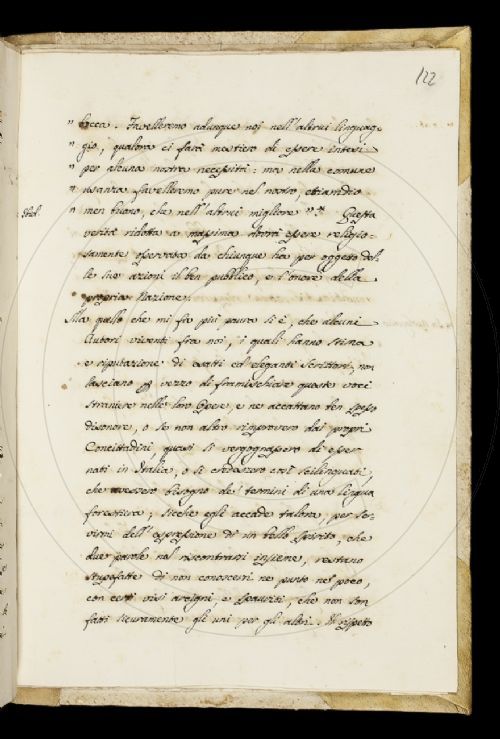 122
" bocca. Favelleremo adunque noi nell'altrui linguag-
" gio, qualora ci farà mestiero di essere intesi
" per alcuna nostra necessità: ma nella comune
" usanza favelleremo pure nel nostro, eziandio
" men buono, che nell'altrui migliore "* Questa
verità ridotta a massima dovrà essere religio-
samente osservata da chiunque ha per oggetto del-
le sue azioni il ben pubblico, e l'onore della
propria Nazione.
Ma quello che mi fa più paura si è, che alcuni
Autori viventi fra noi, i quali hanno stima
e riputazione di esatti ed eleganti Scrittori, non
lasciano per vezzo di framischiare queste voci
straniere nelle loro Opere, e ne accattano ben spesso
disonore, o se non altro rimprovero dai propri
Concittadini quasi si vergognassero di esser
nati in Italia, o si credessero così scilinguati,
che avessero bisogno de' termini di una lingua
forestiera; sicchè egli accade talora, per ser-
virmi dell'espressione di un bello spirito, che
due parole nel riscontrarsi insieme, restano
stupefatte di non conoscersi ne punto ne poco,
con certi visi arcigni, e spauriti, che non son
fatti sicuramente gli uni per gli altri. Il rispeto